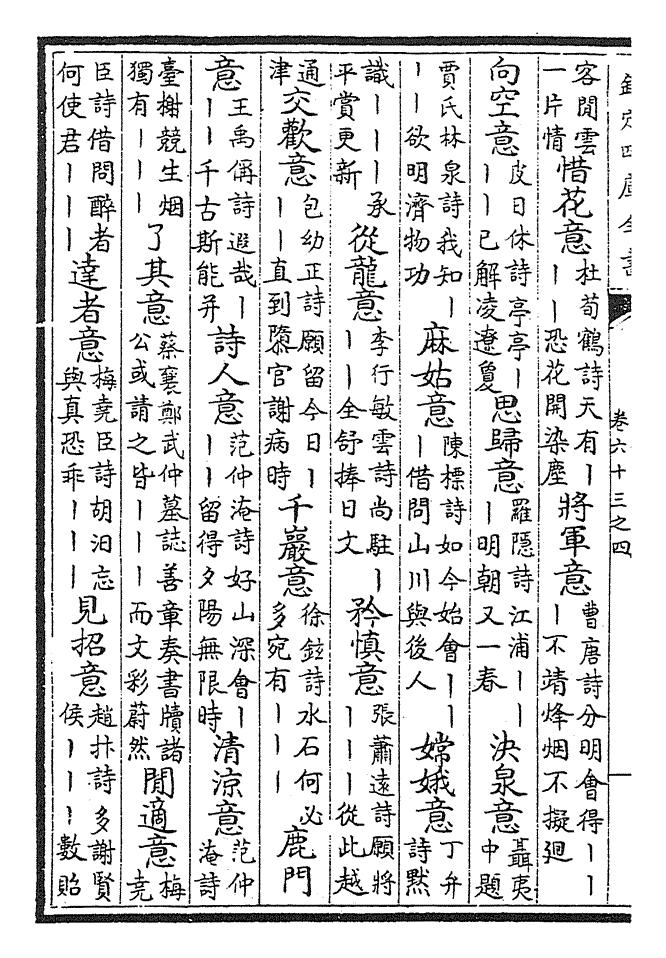 欽定四庫全書
卷六十三之四
客閒雲一片情 惜花意 杜荀鶴詩天有丨丨丨恐花開染塵 將軍意 曹唐詩分明會得丨丨丨不靖烽烟不擬廻
向空意 皮日休詩亭亭丨丨丨已解凌遼夐 思歸意 羅隱詩江浦丨丨丨明朝又一春 決泉意 聶夷中題
賈氏林泉詩我知丨丨丨欲明濟物功 麻姑意 陳標詩如今始會丨丨丨借問山川與後人 嫦娥意 丁弁詩黙
識丨丨丨承平賞更新 從龍意 李行敏雲詩尚駐丨丨丨全舒捧日文 矜慎意 張蕭遠詩願將丨丨丨從此越
通津 交歡意 包幼正詩願留今日丨丨丨直到隳官謝病時 千巖意 徐鉉詩水石何必多宛有丨丨丨 鹿門
意 王禹偁詩遐哉丨丨丨千古斯能并 詩人意 范仲淹詩好山深會丨丨丨留得夕陽無限時 清涼意 范仲淹詩
臺榭競生烟獨有丨丨丨 了其意 蔡襄鄭武仲墓誌善章奏書牘諸公或請之皆丨丨丨而文彩蔚然 閒適意 梅堯
臣詩借問醉者何使君丨丨丨 達者意 梅堯臣詩胡汨忘與真恐乖丨丨丨 見招意 趙抃詩多謝賢侯丨丨丨數貽